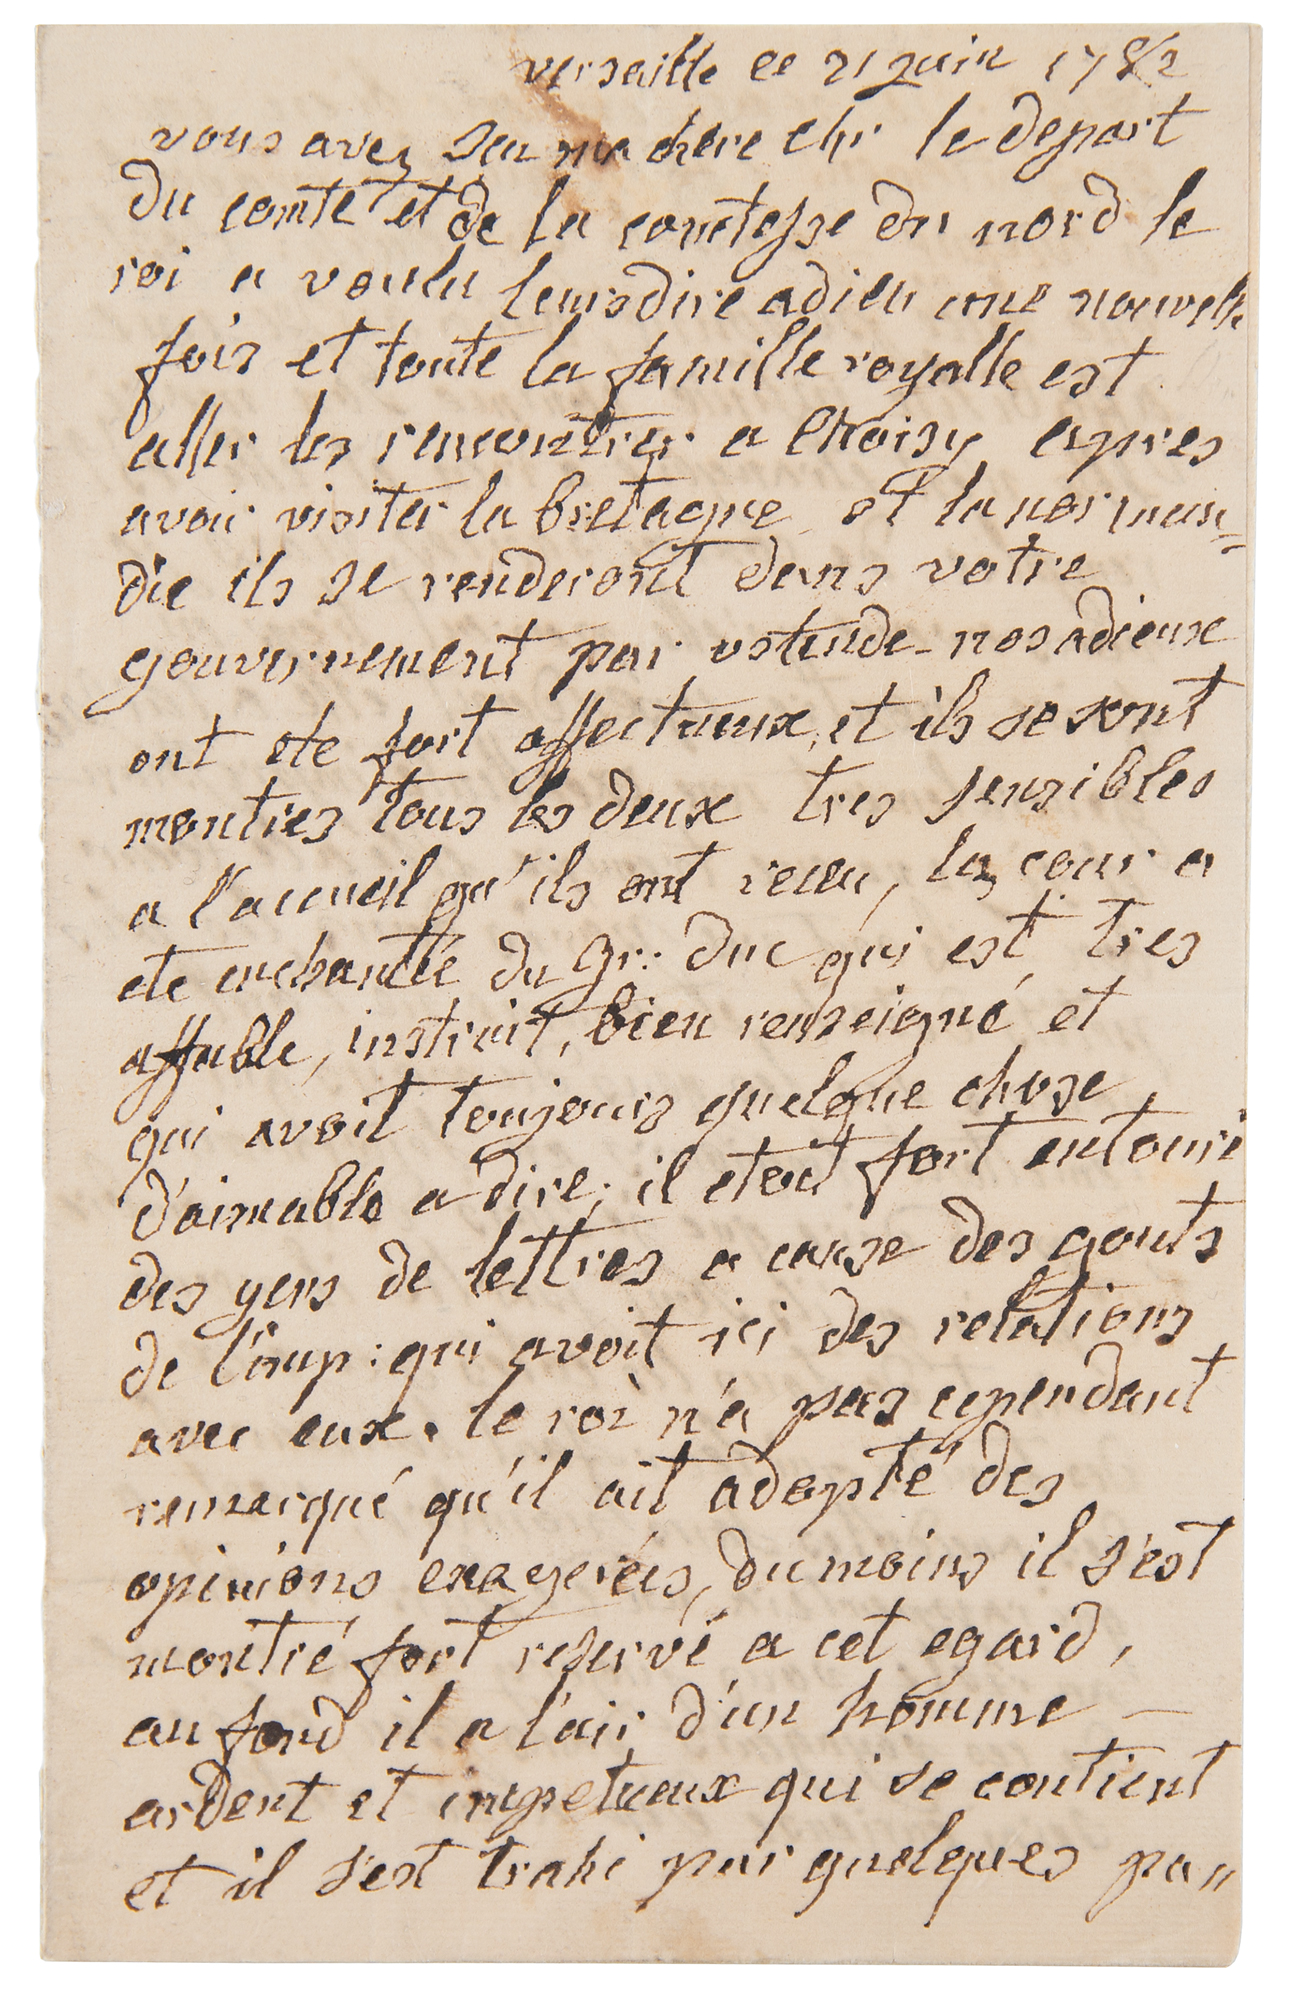 versaille ce 21 juin 1782
vous avez seu ma chere chr le depart
du comte et de la comtesse du nord le
roi a voulu leurs dire adieu une nouvelle
fois et toute la famille royalle est
aller les rencontrer a Choisy apres
avoir visiter la bretagne et la norman=
die ils se renderont dans votre
gouvernement par ostende nos adieux
ont ete fort affectueux, et ils se sont
montres tous les deux tres sensibles
a l'accueil qu'ils ont recu, la cour a
ete enchantée du gr: duc qui est tres
affable, instruit, bien renseigné et
qui avoit toujours quelque chose
d'aimable a dire; il etoit fort entouré
des gens de lettres a cause des gouts
de l'imp: qui avoit ici des relations
avec eux. le roi n'a pas cependant
remarqué qu'il ait adopté des
opinions exagerées, du moins il s'est
montré fort reservé a cet egard,
au fond il a l'air d'un homme —
ardent et impetueux qui se contient
et il s'est trahi par quelques pa"